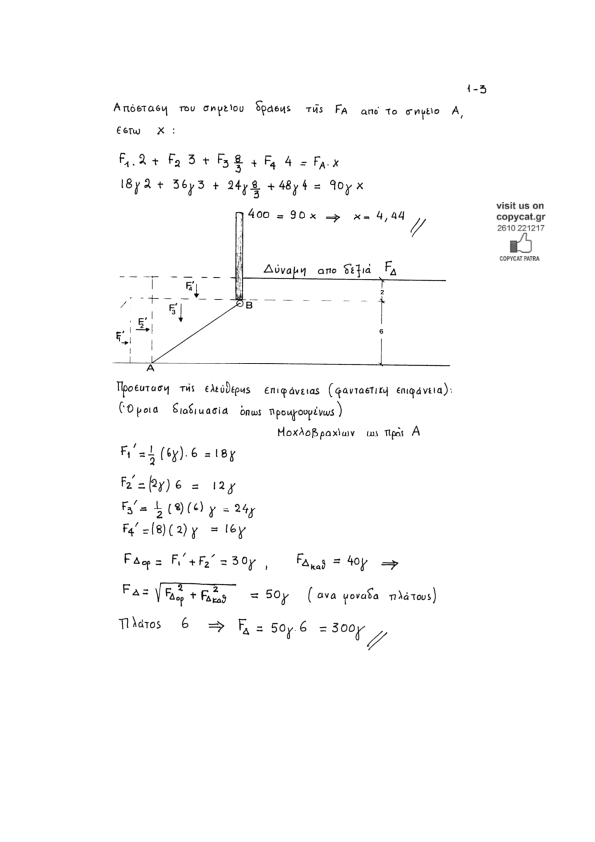 1-3
Απόσταση του σημείου δράσης τῆς FA από το σημείο Α,
εστω x :
F₁.2 + F₂ 3 + F₃ 8/3 + F₄ 4 = FA.x
18γ2 + 36γ3 + 24γ8/3 + 48γ4 = 90γ x
400 = 90 x ⇒ x = 4,44 //
visit us on
copycat.gr
2610 221217
COPYCAT PATRA
Δύναμη απο δεξιά FΔ
F₄'
2
B
F₃'
F₂'
F₁'
6
A
Προέκταση τής ελεύθερης επιφάνειας (φανταστική επιφάνεια):
(Όμοια διαδικασία όπως προηγουμένως)
Μοχλοβραχίων ως πρός Α
F₁' = 1/2 (6γ).6 = 18γ
F₂' = (2γ) 6 = 12γ
F₃' = 1/2 (8)(6) γ = 24γ
F₄' = (8)(2) γ = 16γ
FΔορ = F₁' + F₂' = 30γ , FΔκαθ = 40γ ⇒
FΔ = √(FΔορ² + FΔκαθ²) = 50γ (ανα μονάδα πλάτους)
Πλάτος 6 ⇒ FΔ = 50γ.6 = 300γ //